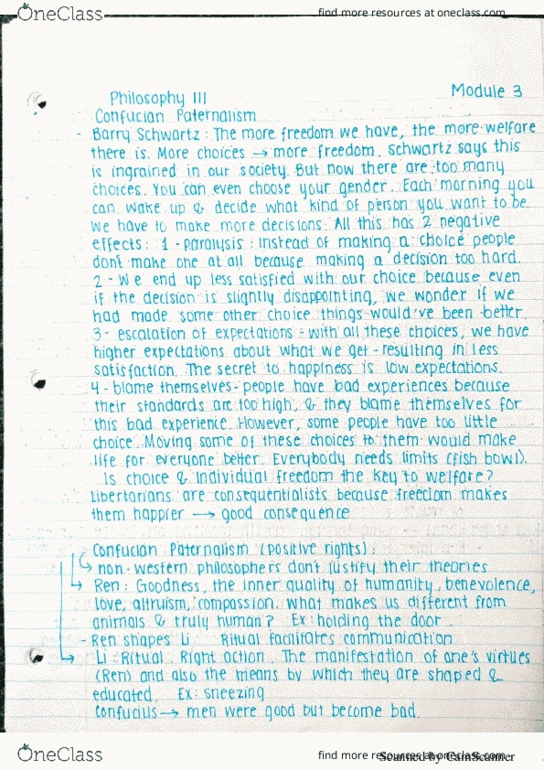 OneClass find more resources at oneclass.com
Module 3
Philosophy III
Confucian Paternalism
- Barry Schwartz : The more freedom we have, the more welfare
there is. More choices → more freedom. Schwartz says this
is ingrained in our society. But now there are too many
choices. You can even choose your gender. Each morning you
can wake up & decide what kind of person you want to be.
We have to make more decisions. All this has 2 negative
effects: 1 - paralysis : Instead of making a choice people
dont make one at all because making a decision too hard.
2 - We end up less satisfied with our choice because even
if the decision is slightly disappointing, we wonder if we
had made some other choice things would've been better.
3 - escalation of expectations - with all these choices, we have
higher expectations about what we get - resulting in less
satisfaction. The secret to happiness is low expectations.
4 - blame themselves - people have bad experiences because
their standards are too high, & they blame themselves for
this bad experience. However, some people have too little
choice. Moving some of these choices to them would make
life for everyone better. Everybody needs limits (fish bowl).
Is choice & individual freedom the key to welfare?
Libertarians are consequentialists because freedom makes
them happier → good consequence
Confucian Paternalism (positive rights) :
↳ non-western philosophers don't justify their theories
↳ Ren : Goodness, the inner quality of humanity, benevolence,
love, altruism, compassion. What makes us different from
animals & truly human? Ex: holding the door
- Ren shapes Li Ritual facilitates communication
↳ Li : Ritual. Right action. The manifestation of one's virtues
(Ren) and also the means by which they are shaped &
educated. Ex: sneezing
Confucius → men were good but become bad.
OneClass find more resources at oneclass.com
Scanned by CamScanner